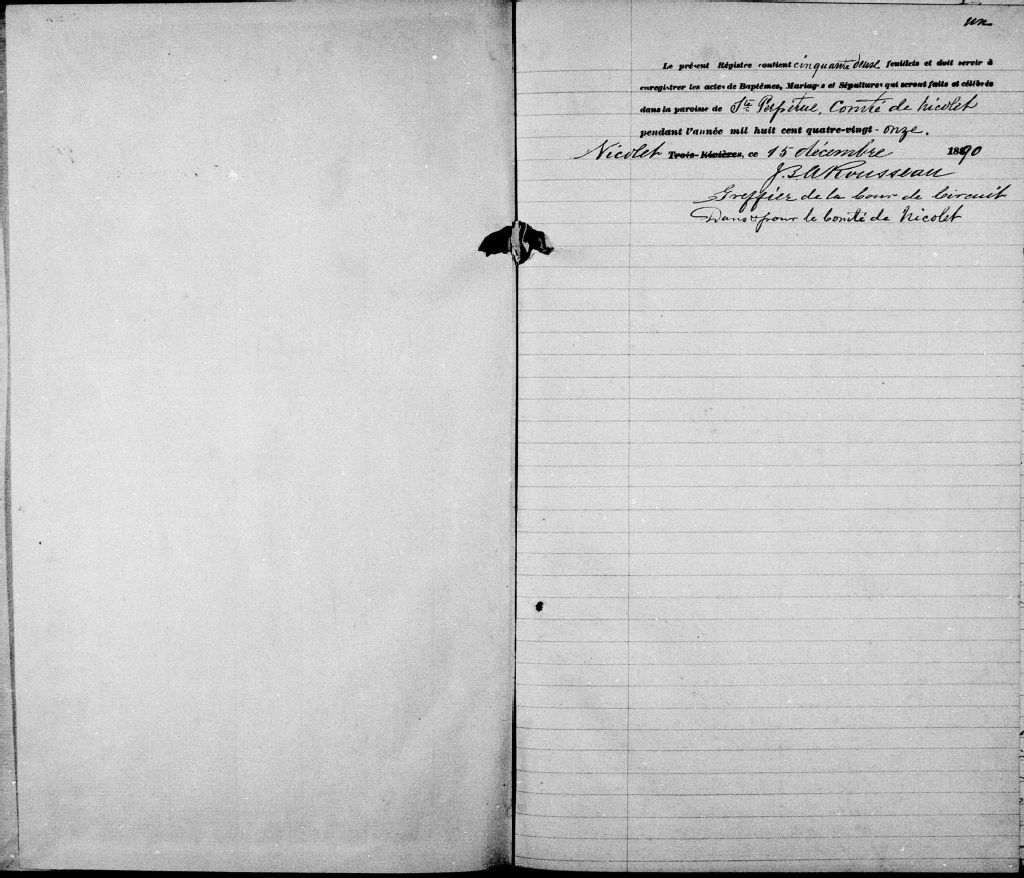 un
Le présent Régistre contient cinquante deux feuillets et doit servir à
enregistrer les actes de Baptêmes, Mariages et Sépultures qui seront faits et célébrés
dans la paroisse de Ste Perpétue, Comté de Nicolet
pendant l'année mil huit cent quatre-vingt-onze.
Nicolet Trois-Rivières, ce 15 décembre 1890
J.B.A Rousseau
Greffier de la Cour de Circuit
Dans & pour le Comté de Nicolet